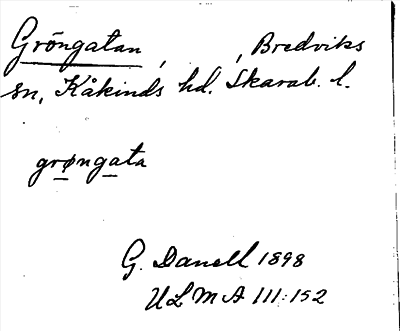 Gröngatan , , Bredviks
sn, Kåkinds hd. Skarab. l.
grøngata
G. Danell 1898
ULMA 111:152